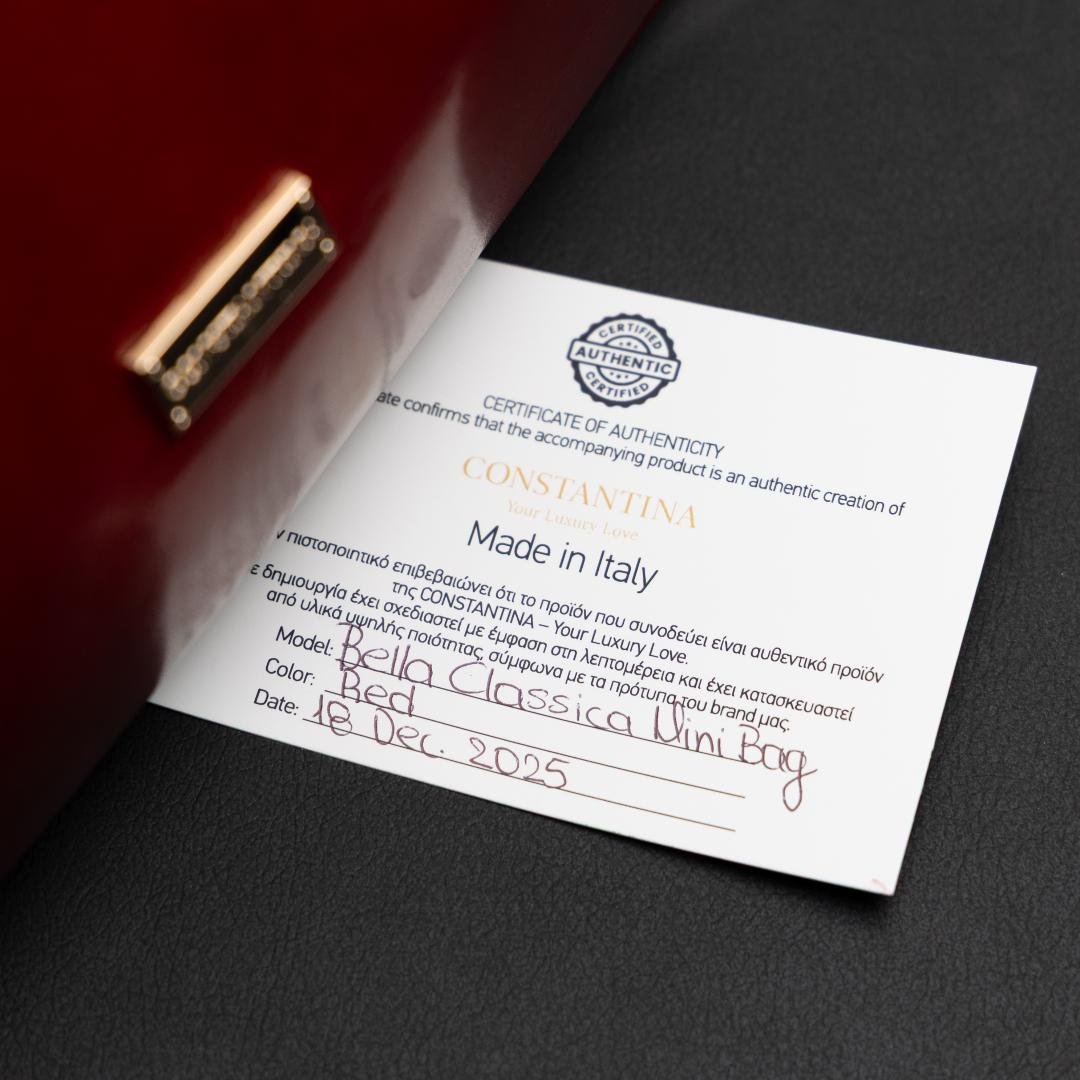 CERTIFIED
AUTHENTIC
CERTIFIED
CERTIFICATE OF AUTHENTICITY
confirms that the accompanying product is an authentic creation of
CONSTANTINA
Your Luxury Love
Made in Italy
πιστοποιητικό επιβεβαιώνει ότι το προϊόν που συνοδεύει είναι αυθεντικό προϊόν
της CONSTANTINA – Your Luxury Love.
δημιουργία έχει σχεδιαστεί με έμφαση στη λεπτομέρεια και έχει κατασκευαστεί
από υλικά υψηλής ποιότητας, σύμφωνα με τα πρότυπα του brand μας.
Model: Bella Classica Mini Bag
Color: Red
Date: 18 Dec. 2025